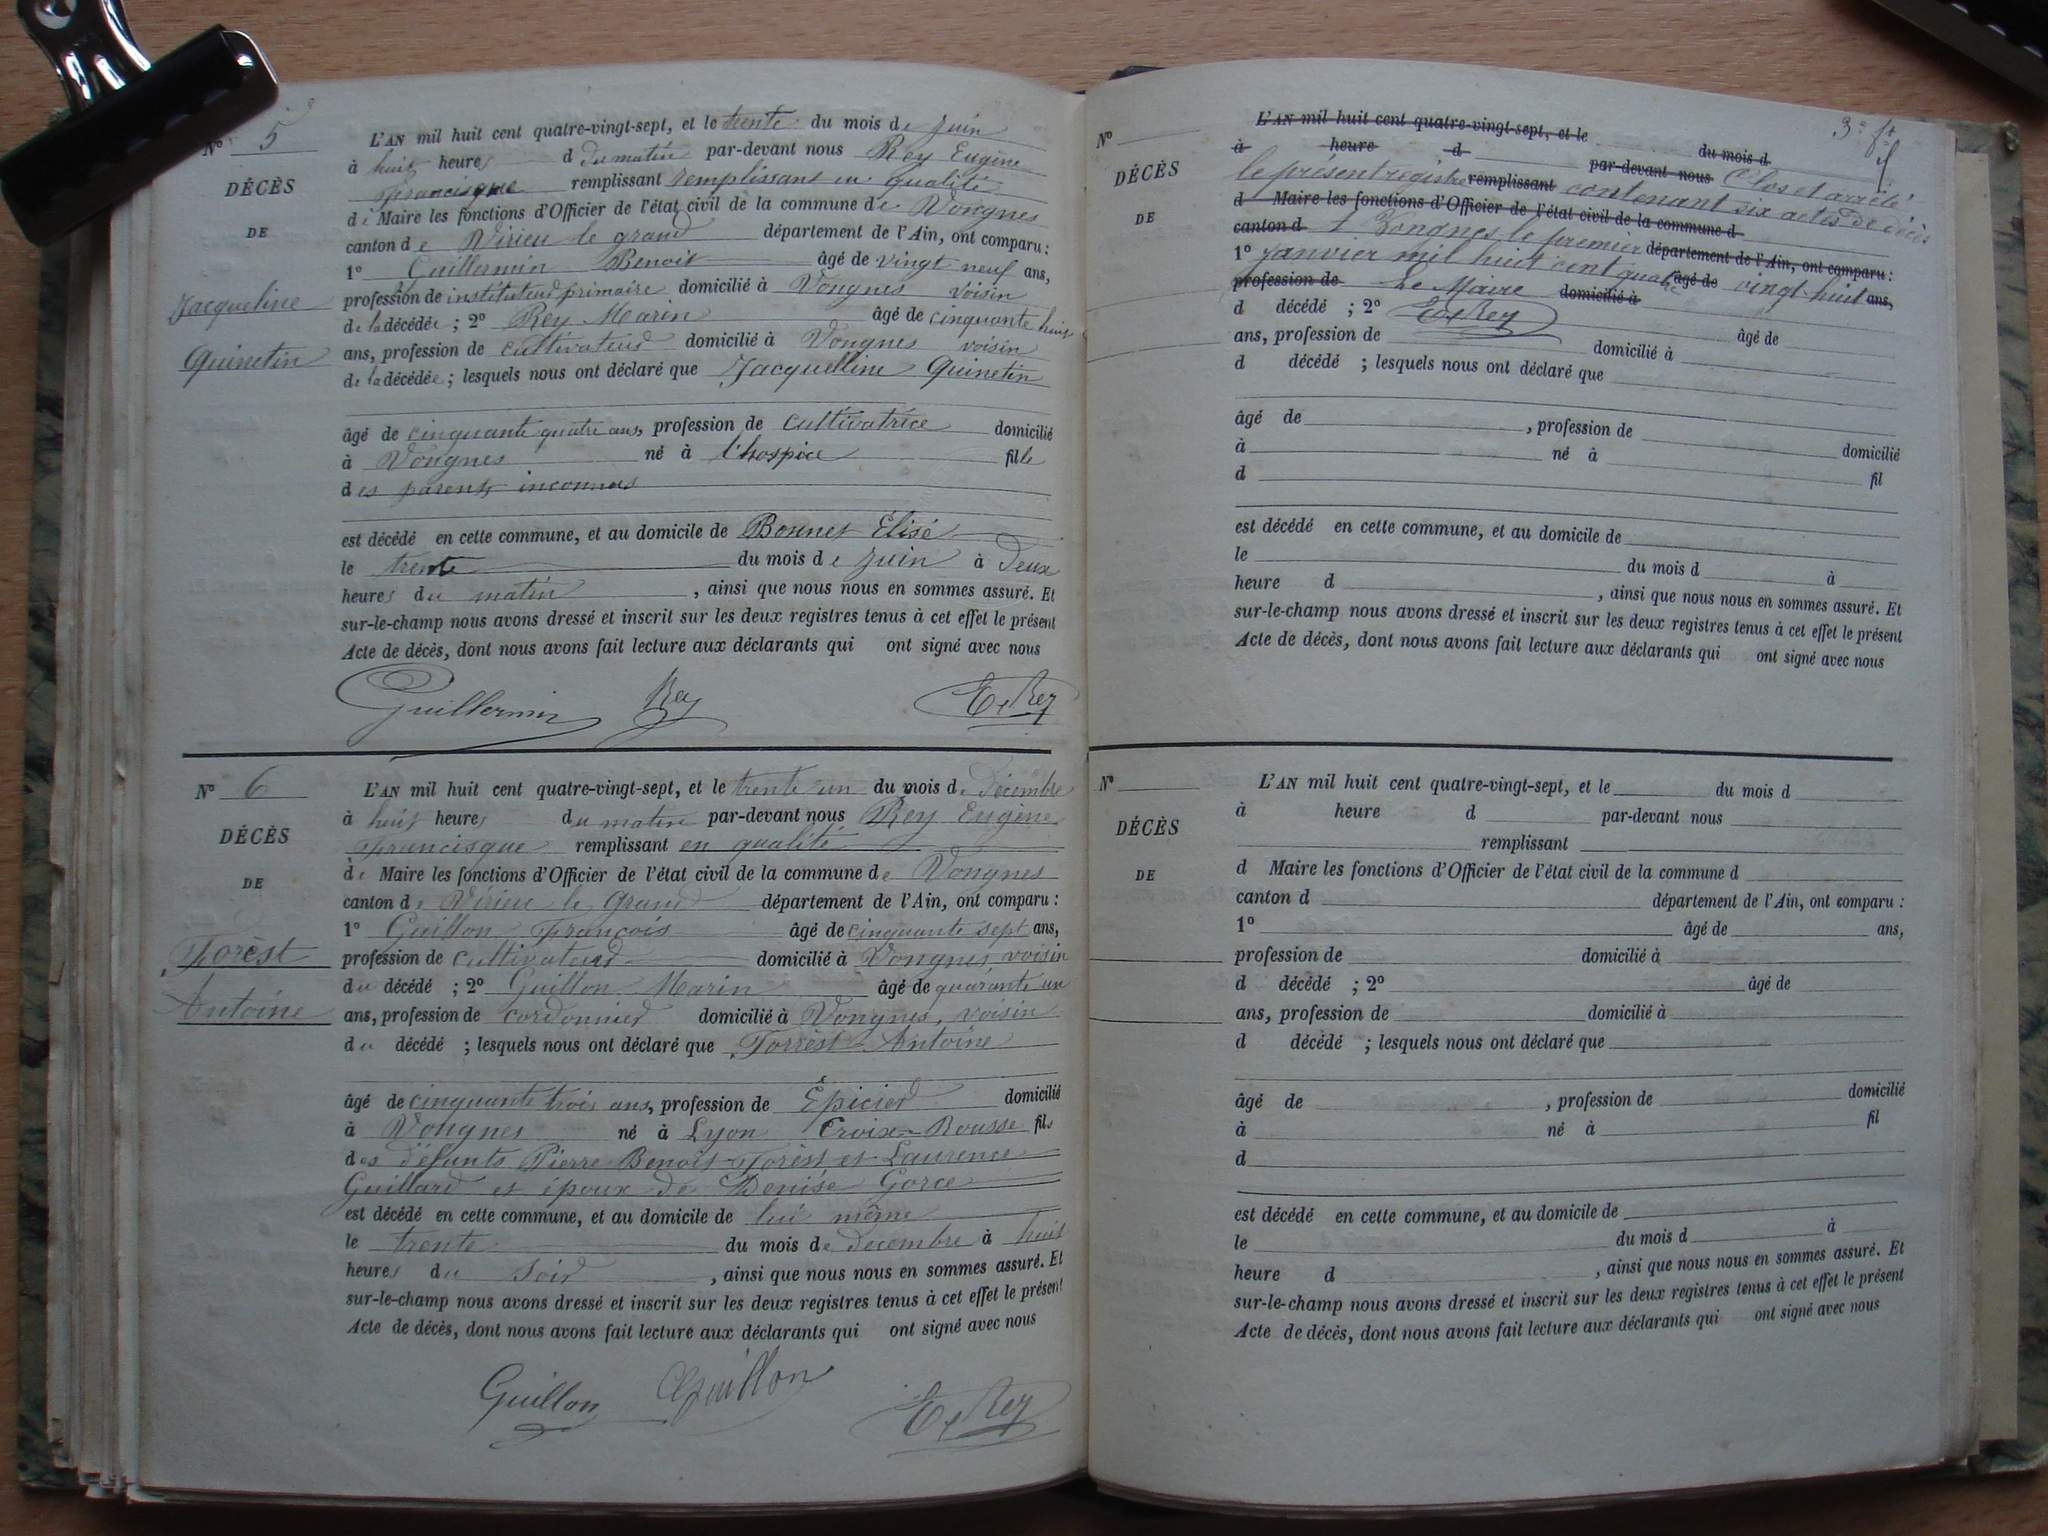 N° 5
DÉCÈS
DE
Jacqueline
Quinetin
L'AN mil huit cent quatre-vingt-sept, et le trente du mois de juin
à huit heures d du matin par-devant nous Rey Eugène
Francisque remplissant remplissant en qualité
de Maire les fonctions d'Officier de l'état civil de la commune de Vongnes
canton de Virieu le grand département de l'Ain, ont comparu :
1° Guillermin Benoit âgé de vingt neuf ans,
profession de instituteur primaire domicilié à Vongnes voisin
de la décédée ; 2° Rey Marin âgé de cinquante huit
ans, profession de cultivateur domicilié à Vongnes voisin
de la décédée ; lesquels nous ont déclaré que Jacquelline Quinetin
âgé de cinquante quatre ans, profession de cultivatrice domicilié
à Vongnes né à l'hospice fille
des parents inconnus
est décédé en cette commune, et au domicile de Bonnet Élisé
le trente du mois de juin à deux
heures du matin , ainsi que nous nous en sommes assuré. Et
sur-le-champ nous avons dressé et inscrit sur les deux registres tenus à cet effet le présent
Acte de décès, dont nous avons fait lecture aux déclarants qui ont signé avec nous
Guillermin Rey E Rey
N° 6
DÉCÈS
DE
Forèst
Antoine
L'AN mil huit cent quatre-vingt-sept, et le trente un du mois de Décembre
à huit heures du matin par-devant nous Rey Eugène
Francisque remplissant en qualité
de Maire les fonctions d'Officier de l'état civil de la commune de Vongnes
canton de Virieu le Grand département de l'Ain, ont comparu :
1° Guillon François âgé de cinquante sept ans,
profession de cultivateur domicilié à Vongnes, voisin
du décédé ; 2° Guillon Marin âgé de quarante un
ans, profession de cordonnier domicilié à Vongnes, voisin
du décédé ; lesquels nous ont déclaré que Forrèst Antoine
âgé de cinquante trois ans, profession de Épicier domicilié
à Vongnes né à Lyon Croix-Rousse fils
des défunts Pierre Benoit Forèst et Laurence
Guillard et époux de Denise Gorce
est décédé en cette commune, et au domicile de lui même
le trente du mois de décembre à huit
heures du soir , ainsi que nous nous en sommes assuré. Et
sur-le-champ nous avons dressé et inscrit sur les deux registres tenus à cet effet le présent
Acte de décès, dont nous avons fait lecture aux déclarants qui ont signé avec nous
Guillon Guillon E Rey
3e ft
N°
DÉCÈS
DE
L'AN mil huit cent quatre-vingt-sept, et le du mois d
à heure d par-devant nous Clos et arrêté
le présent registre remplissant contenant six actes de décès
d Maire les fonctions d'Officier de l'état civil de la commune d
canton d à Vongnes le premier département de l'Ain, ont comparu :
1° janvier mil huit cent quatre âgé de vingt huit ans,
profession de Le Maire domicilié à
d décédé ; 2° E Rey âgé de
ans, profession de domicilié à
d décédé ; lesquels nous ont déclaré que
âgé de , profession de domicilié
à né à fil
d
est décédé en cette commune, et au domicile de
le du mois d à
heure d , ainsi que nous nous en sommes assuré. Et
sur-le-champ nous avons dressé et inscrit sur les deux registres tenus à cet effet le présent
Acte de décès, dont nous avons fait lecture aux déclarants qui ont signé avec nous
N°
DÉCÈS
DE
L'AN mil huit cent quatre-vingt-sept, et le du mois d
à heure d par-devant nous
remplissant
d Maire les fonctions d'Officier de l'état civil de la commune d
canton d département de l'Ain, ont comparu :
1° âgé de ans,
profession de domicilié à
d décédé ; 2° âgé de
ans, profession de domicilié à
d décédé ; lesquels nous ont déclaré que
âgé de , profession de domicilié
à né à fil
d
est décédé en cette commune, et au domicile de
le du mois d à
heure d , ainsi que nous nous en sommes assuré. Et
sur-le-champ nous avons dressé et inscrit sur les deux registres tenus à cet effet le présent
Acte de décès, dont nous avons fait lecture aux déclarants qui ont signé avec nous